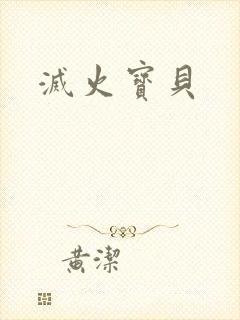 滅火寶貝
黄潔